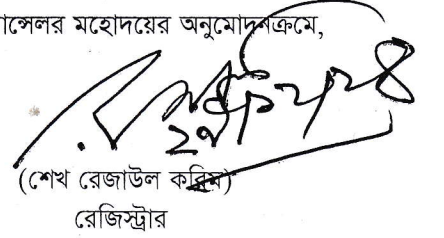 ান্সেলর মহোদয়ের অনুমোদনক্রমে,
(শেখ রেজাউল করিম)
রেজিস্ট্রার